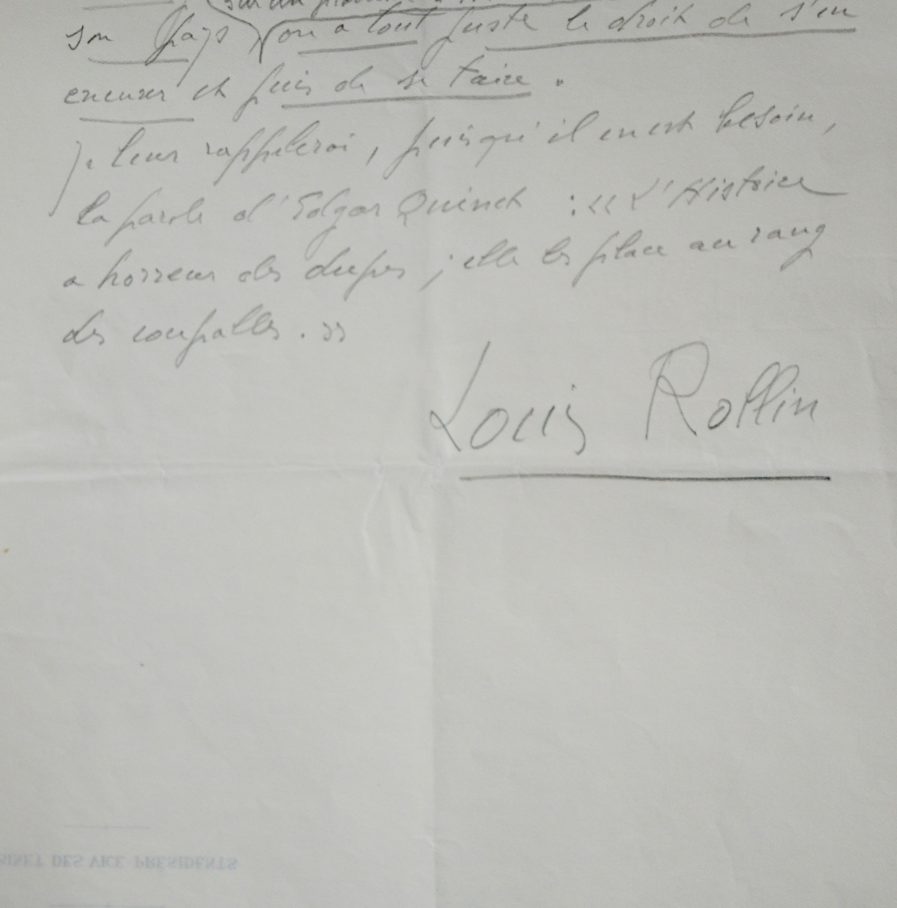 sur un
son pays on a tout juste le droit de s'en
excuser et puis de se taire.
je leur rappelerai, puisqu'il en est besoin,
la parole d'Edgar Quinet : << L'Histoire
a horreur des dupes ; elle les place au rang
des coupables. >>
Louis Rollin
BINET DES VICE PRESIDENTS